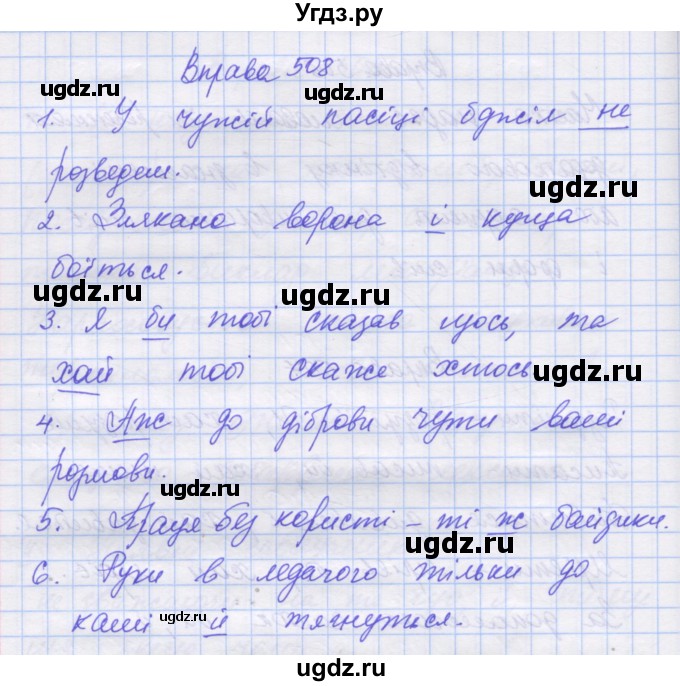 Угдз.ру
Вправа 508
1. У чужій пасіці бджіл не
розведеш.
2. Злякана ворона і куща
боїться.
3. Я би тобі сказав щось, та
хай тобі скаже хтось
4. Аж до діброви чути ваші
розмови.
5. Праця без користі – ті ж байдики.
6. Руки в ледачого тільки до
каші й тягнуться.
ugdz.ru
ugdz.ru
ugdz.ru
ugdz.ru
ugdz.ru
ugdz.ru
ugdz.ru
ugdz.ru
ugdz.ru
ugdz.ru
ugdz.ru
ugdz.ru
ugdz.ru